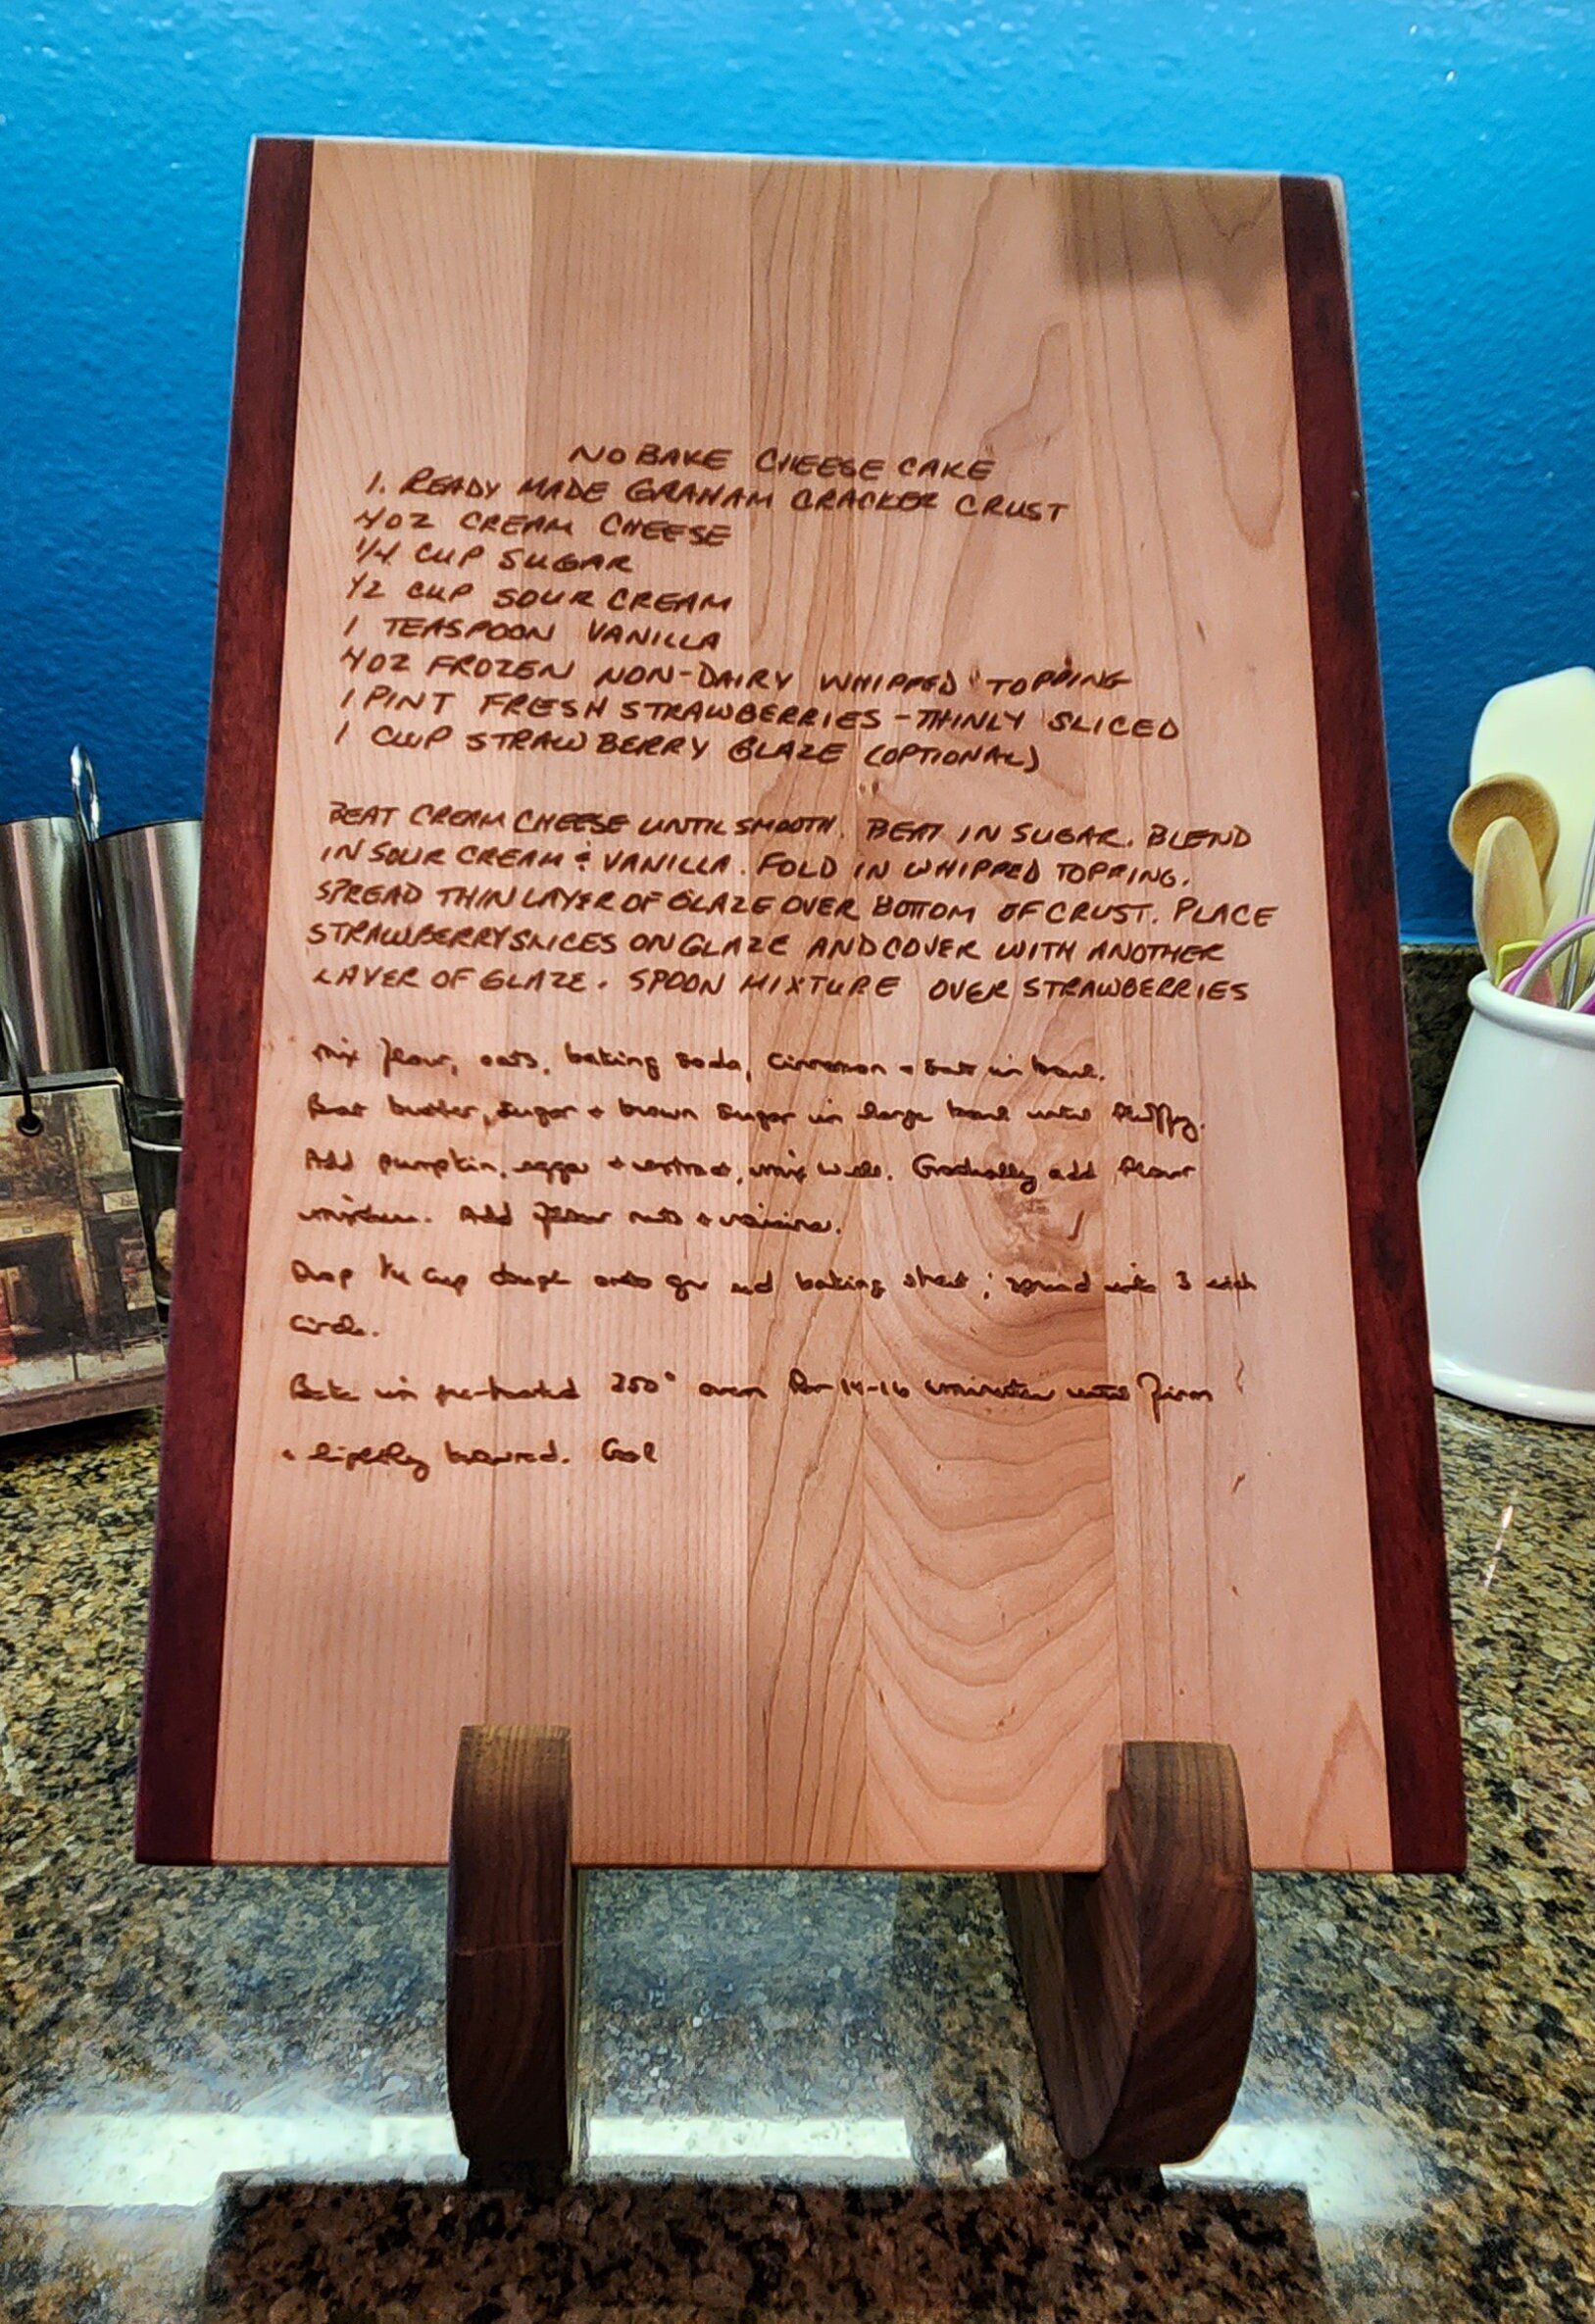 NO BAKE CHEESE CAKE
1. READY MADE GRAHAM CRACKER CRUST
4OZ CREAM CHEESE
1/4 CUP SUGAR
1/2 CUP SOUR CREAM
1 TEASPOON VANILLA
4OZ FROZEN NON-DAIRY WHIPPED TOPPING
1 PINT FRESH STRAWBERRIES - THINLY SLICED
1 CUP STRAWBERRY GLAZE (OPTIONAL)
BEAT CREAM CHEESE UNTIL SMOOTH. BEAT IN SUGAR. BLEND
IN SOUR CREAM & VANILLA. FOLD IN WHIPPED TOPPING.
SPREAD THIN LAYER OF GLAZE OVER BOTTOM OF CRUST. PLACE
STRAWBERRY SLICES ON GLAZE AND COVER WITH ANOTHER
LAYER OF GLAZE. SPOON MIXTURE OVER STRAWBERRIES
Mix flour, oats, baking soda, cinnamon + salt in bowl.
Beat butter, sugar + brown sugar in large bowl until fluffy.
Add pumpkin, eggs + extract, mix well. Gradually add flour
mixture. Add nuts + raisins.
Drop 1/4 cup dough onto baking sheet; spread into 3 inch
circle.
Bake in pre-heated 350° oven for 14-16 minutes until firm
+ lightly browned. Cool